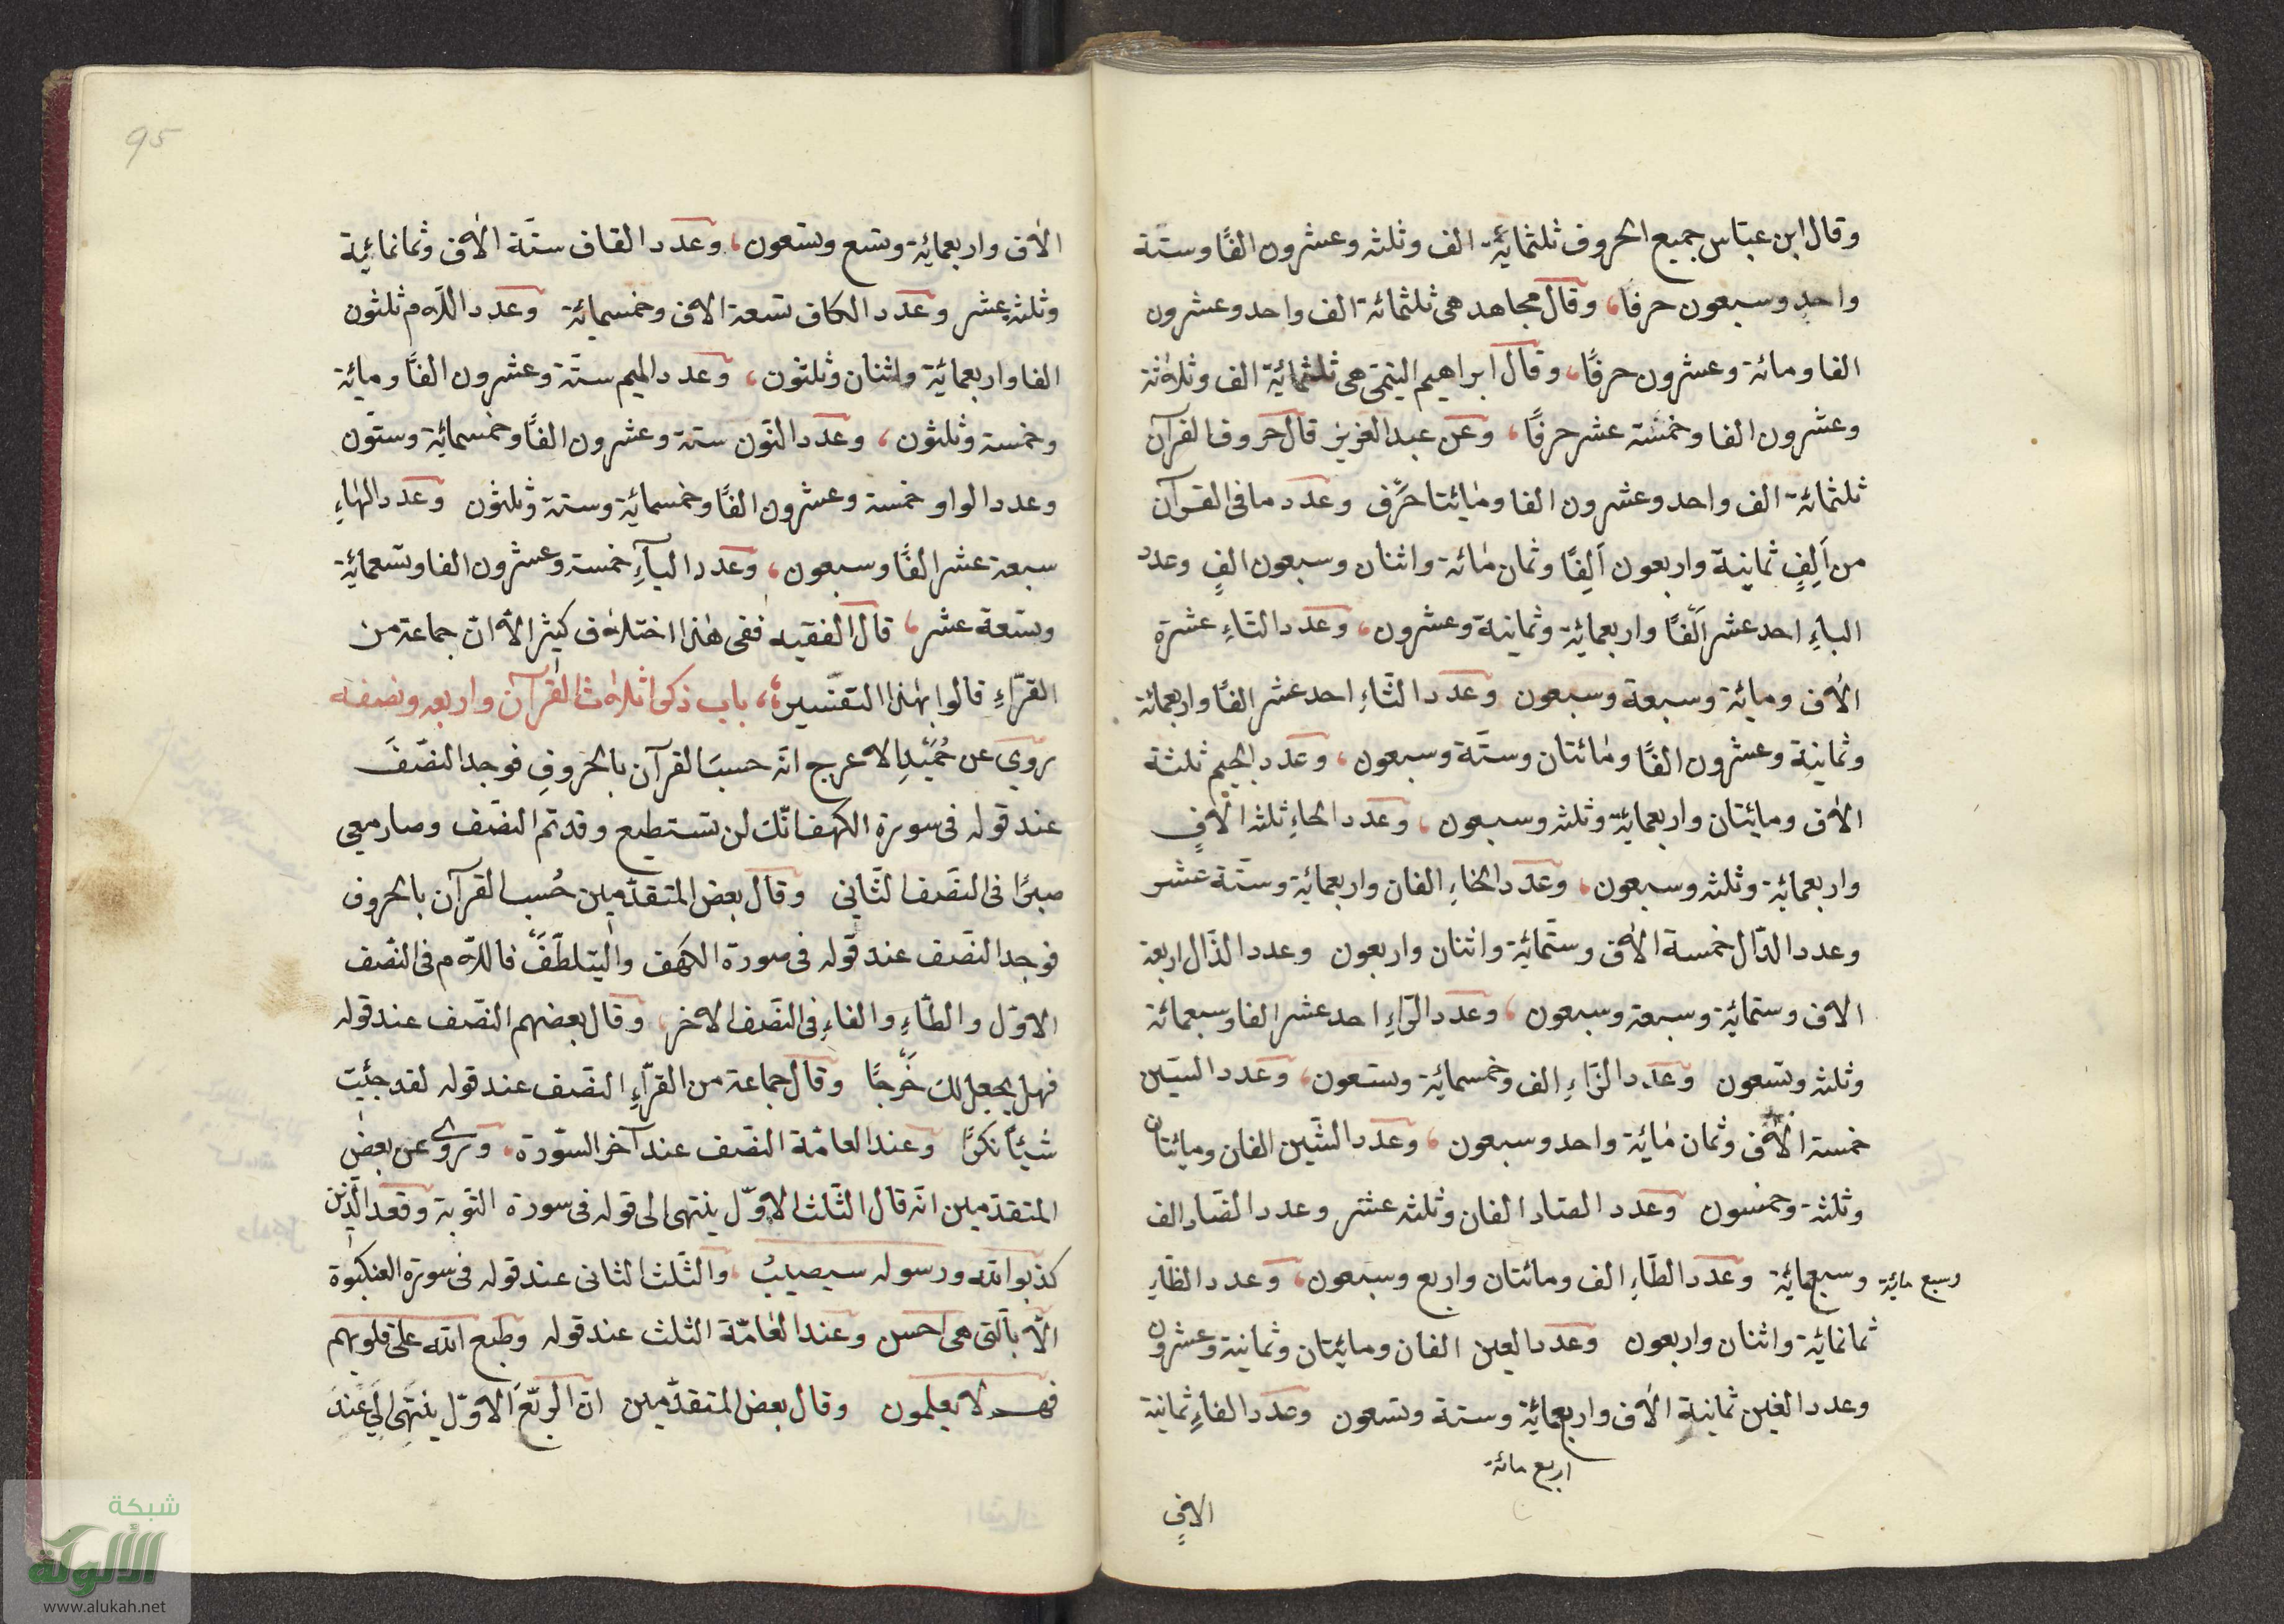 وقال ابن عبّاس جميع الحروف ثلثمائة الف وثلثه وعشرون الفًا وستّة
واحد وسبعون حرفا، وقال مجاهد هى ثلثمائة الف واحد وعشرون
الفا ومائة وعشرون حرفًا، وقال ابراهيم التيمّى هى ثلثمائة الف وثلاثة
وعشرون الفا وخمسة عشر حرفًا، وعن عبد العزيز قال حروف القرآن
ثلثمائة الف واحد وعشرون الفا ومايئتا حرف وعدد ما فى القرآن
من اَلِفٍ ثمانية واربعون اَلِفًا وثمان مائة واثنان وسبعون الفٍ وعدد
الباءِ احد عشر اَلْفًا واربعمائة وثمانية وعشرون، وعدد التاءِ عشرة
الآف ومايئة وسبعة وسبعون وعدد الثّاءِ احد عشر الفًا واربعمائة
وثمانية وعشرون الفًا ومائتان وستّة وسبعون، وعدد الجيم ثلثة
الآف ومايئتان واربعمائة وثلثه وسبعون، وعدد الحاءِ ثلثه الآفٍ
واربعمائة وثلثه وسبعون، وعدد الخاءِ الفان واربعمائة وستّة عشر
وعدد الدّال خمسة الآف وستّمائة واثنان واربعون وعدد الذّال اربعة
الاف وستمائة وسبعة وسبعون، وعدد الرّاءِ احد عشر الفا وسبعمائة
وثلثه وتسعون وعدد الزّاءِ الف وخمسمائة وتسعون، وعدد السّين
خمسة الآف وثمان مائة واحد وسبعون، وعدد الشّين الفان ومايئتان
وثلثة وخمسون وعدد الصاد الفان وثلثه عشر وعدد الضّاد الف
وسبعمائة وعدد الطّاءِ الف ومائتان واربع وسبعون، وعدد الظّاءِ
وسبع مائة
ثمانمائة واثنان واربعون وعدد العين الفان ومايئتان وثمانية وعشرون
وعدد الغين ثمانية الآف واربعمائة وستة وتسعون وعدد الفاءِ ثمانية
اربع مائة
الافٍ
95
الآف واربعمائة وتسع وتسعون، وعدد القاف ستّة الآف وثمانمائية
وثلثه عشر وعدد الكاف تسعة الاف وخمسمائة وعدد اللّام ثلثون
الفا واربعمائة واثنان وثلثون، وعدد الميم ستّة وعشرون الفًا ومائة
وخمسة وثلثون، وعدد النّون ستة وعشرون الفًا وخمسمائة وستّون
وعدد الواو خمسة وعشرون الفًا وخمسمائة وستة وثلثون وعدد الهاءِ
سبعة عشر الفًا وسبعون، وعدد اليآءِ خمسة وعشرون الفا وتسعمائة
وتسعة عشر، قال الفقيه ففى هذا اختلاف كثير الّا انّ جماعة من
القرّاءِ قالوا بهذا التفسير، باب ذكر اثلاث القرآن واربعه ونصفه
روي عن حُمَيْدِ الاعرج انّه حسبَ القرآن بالحروفِ فوجد النصّفَ
عند قوله فى سورة الكهف انّك لن تستطيع وقد تم النصّف وصار معى
صبرًا فى النصّف الثّانى وقال بعض المتقدّمين حُسب القرآن بالحروف
فوجد النصّف عند قوله فى سورة الكهف واليتلطّفْ فاللّام فى النّصف
الاوّل والطّاءِ والفاءِ فى النصّف الاخر، وقال بعضهم النّصف عند قوله
فهل يجعل لك خَرْجًا وقال جماعة من القرّاءِ النصّف عند قوله لقد جئت
شيئاً نكرًا وعند العامّة النصّف عند آخر السّورة، وروى عن بعض
المتقدّمين انّه قال الثّلث الاوّل ينتهى الى قوله فى سورة التّوبة وقعد الّذين
كذبوا الله ورسوله سيصيبُ، والثّلث الثانى عند قوله فى سورة العنكبوة
الّا بالّتى هى احسن وعند العامّة الثلث عند قوله وطبع الله على قلوبهم
فهـم لا يعلمون وقال بعض المتقدّمين انّ الربّعَ الاوّل ينتهِى اِلَى عِندِ
شبكة
الألوكة
www.alukah.net